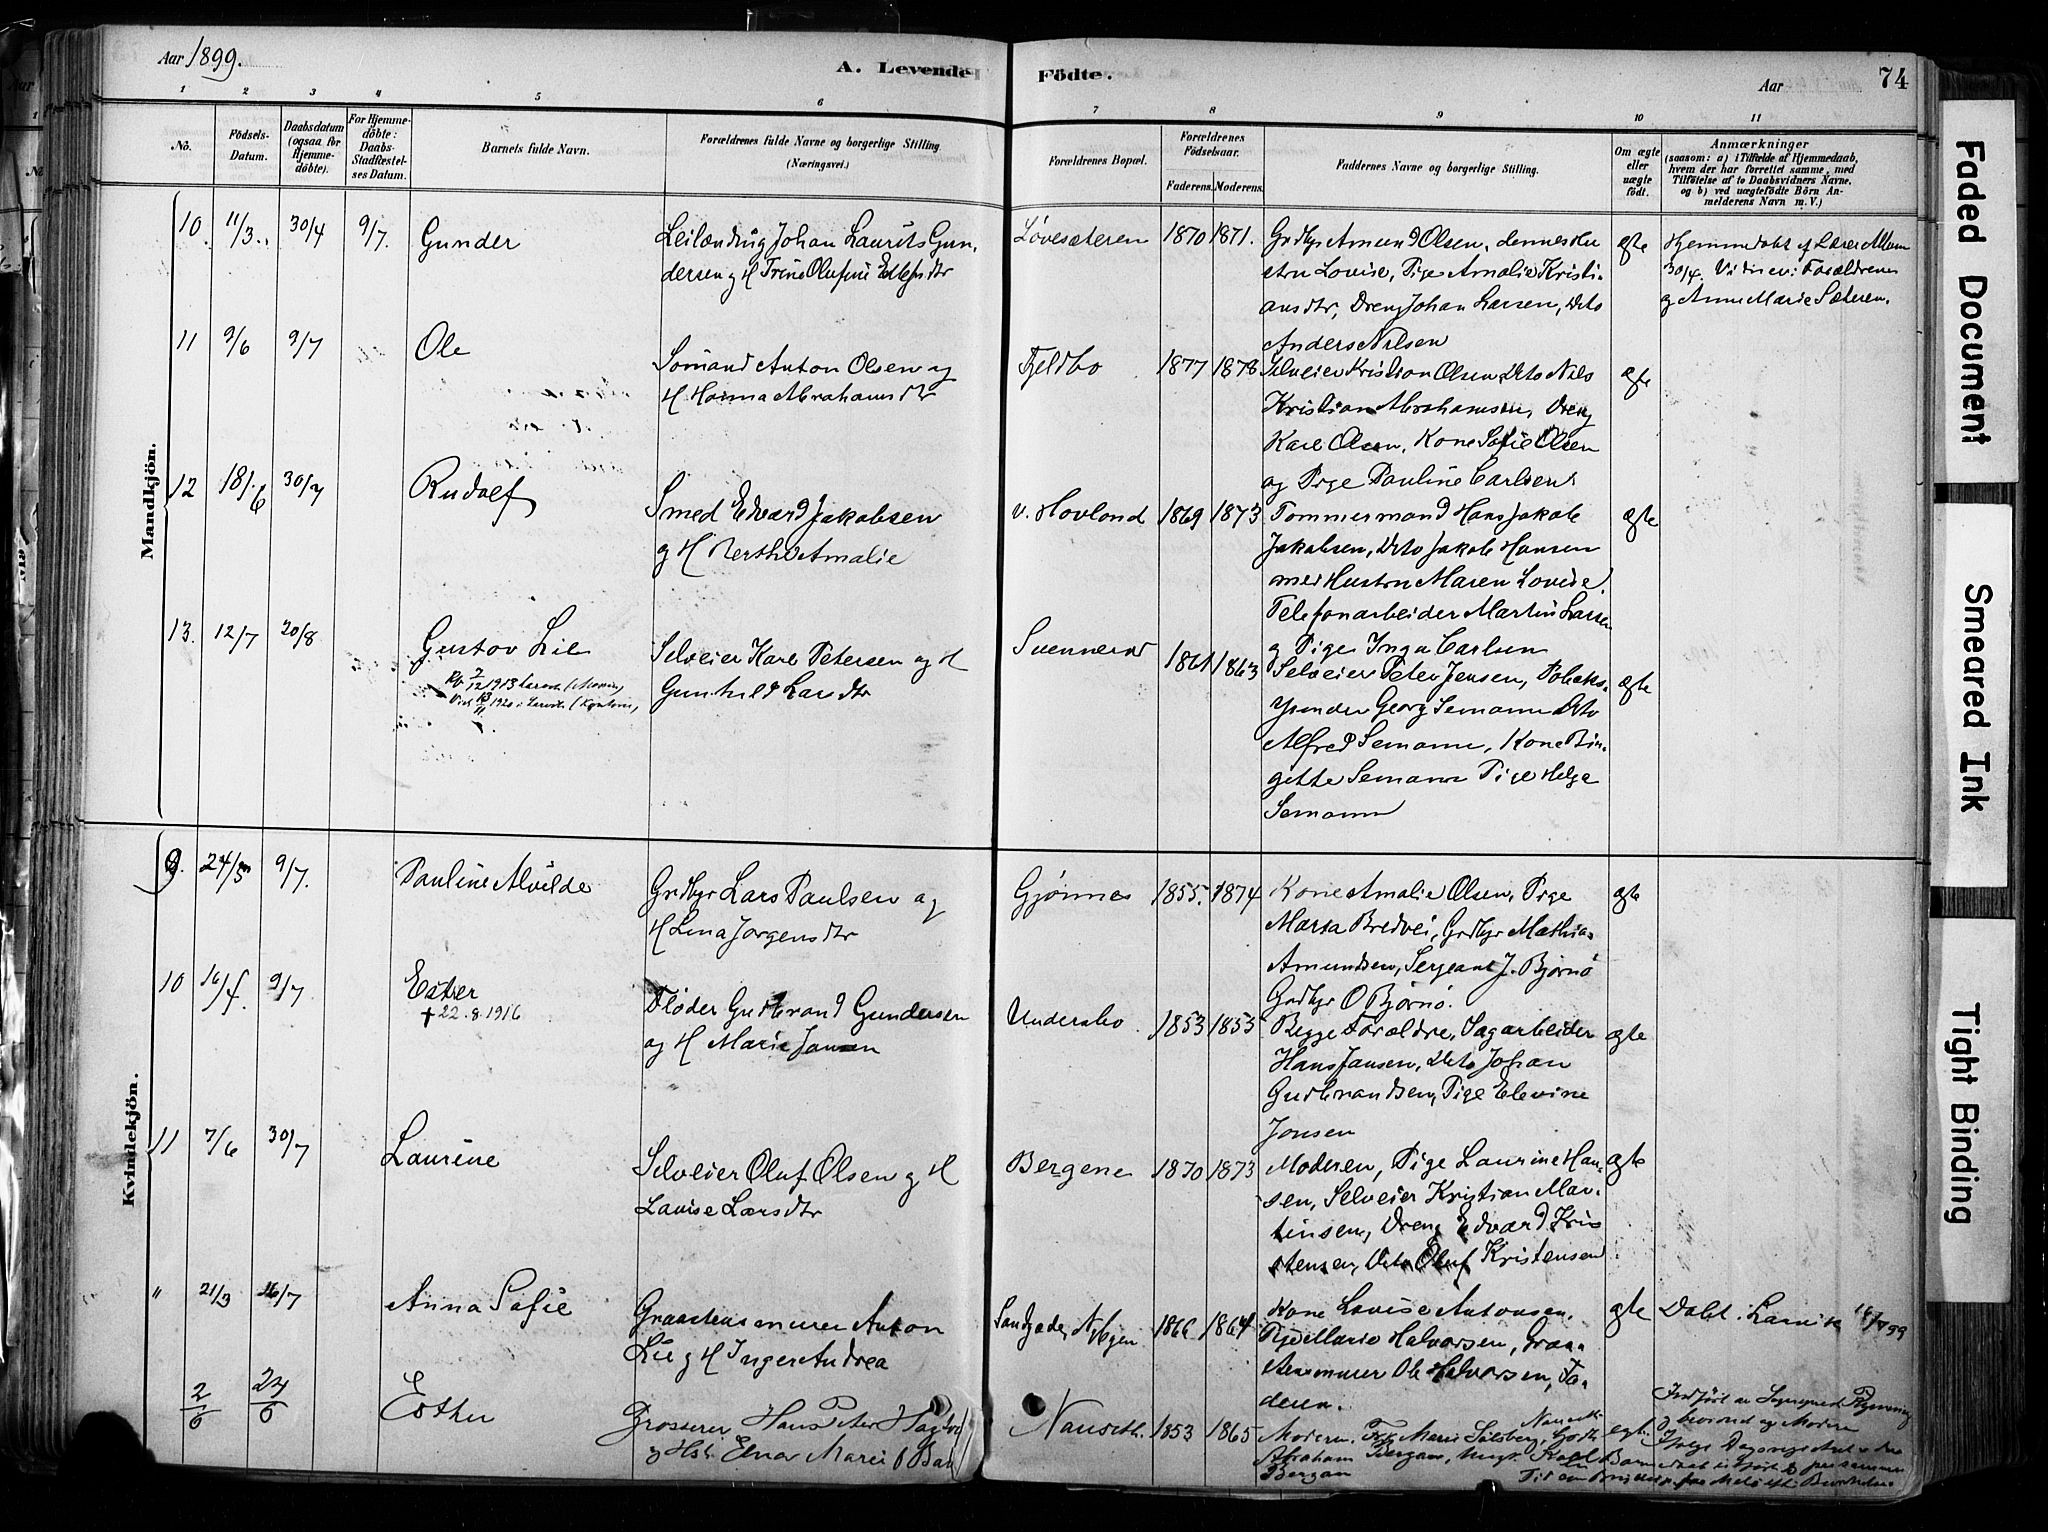 Aar 1899.
A. Levende
Födte.
Aar
74
1 2 3 4 5 6 7 8 9 10 11
No.
Födsels-Datum.
Daabsdatum (ogsaa for Hjemmedöbte).
For Hjemmedöbte: Daabs-Stadfæstelses Datum.
Barnets fulde Navn.
Forældrenes fulde Navne og borgerlige Stilling.
(Næringsvei.)
Forældrenes Bopæl.
Forældrenes Födselsaar.
Faderens. Moderens.
Faddernes Navne og borgerlige Stilling.
Om ægte eller uægte födt.
Anmærkninger
(saasom: a) i Tilfælde af Hjemmedaab,
hvem der har forrettet samme, med
Tilföielse af to Daabsvidners Navne,
og b) ved uægtefödte Börn Anmelderens Navn m. V.)
Mandkjön.
10. 11/3. 30/4 9/7. Gunder
Leilænding Johan Laurits Gundersen og H Trine Olufine
Løvesæteren 1870 1871.
Grdbr Amund Olsen, dennes Hustru Lovise, Pige Amalie Kristiansdtr, Dreng Johan Larsen, Dito
Anders Nilsen
ægte
Hjemmedøbt af Lærer
30/4. Vidner: Forældrene
og Anne Marie Sæteren.
11 3/6 9/7 Ole
Sømand Anton Olsen og
H Hanna Abrahamsdtr
Fjeldbo 1877 1878
Selveier Kristian Olsen, Dito Nils
Kristian Abrahamsen, Dreng
Karl Olsen, Kone Sofie Olsen
og Pige Pauline Carlsen
ægte
12 18/6 30/7 Rudolf
Smed Edvard Jakobsen
og H Berthe Amalie
v. Hovland 1869 1873
Tømmermand Hans Jakob
Jakobsen, Dito Jakob Hansen
med Hustru Maren Lovise,
Telefonarbeider Martin Larsen
og Pige Inga Carlsen
ægte
13. 12/7 20/8 Gustav Lie
1913 Larvik
1920 i Larvik
Selveier Karl Petersen og H
Gunhild Larsdtr
Svennerød 1861 1863
Selveier Peter Jensen, Tobaksspinder Georg Semann Dito
Alfred Semann, Kone Birgitte Semann Pige Helga
Semann
ægte
Kvindekjön.
9. 24/5 9/7. Pauline Alvilde
Grdbr Lars Paulsen og
H Lina Jørgensdtr
Gjønnes 1855. 1874
Kone Amalie Olsen, Pige
Marta Bredvei, Grdbr Mathias
Amundsen, Sergeant J. Bjørnø
Grdbr O Bjørnø.
ægte
10 9/7 Ester
+ 22.8.1916
Fløder Gudbrand Gundersen
og H Marie Jansen
Undersbo. 1853 1855
Begge Forældre, Sagarbeider
Hans Jansen, Dito Johan
Gudbrandsen, Pige Elevine
Jonsen
ægte
11 7/6 30/7 Laurine
Selveier Oluf Olsen og H
Lovise Larsdtr
Bergene 1870 1873
Moderen, Pige Laurine Hansen, Selveier Kristian Martinsen, Dreng Edvard Kristensen, Dito Oluf Kristensen
ægte
" 21/3 16/7 Anna Sofie
Graastensmurer Anton
Lie og H Inger Andrea
1866 1864.
Kone Lovise Antonsen,
Pige Marie Halvorsen, Graastensmurer Ole Halvorsen, Faderen.
ægte
Døbt i Larvik 16/7 99
2/6 24/6 Esther
Grosserer Hans Peter
og Hst. Elna Marie
Nanseth. 1853 1865
Modern, Frk Marie Solberg,
Abraham Bergan, Karl
Bergan
Indført
Faded Document
Smeared Ink
Tight Binding